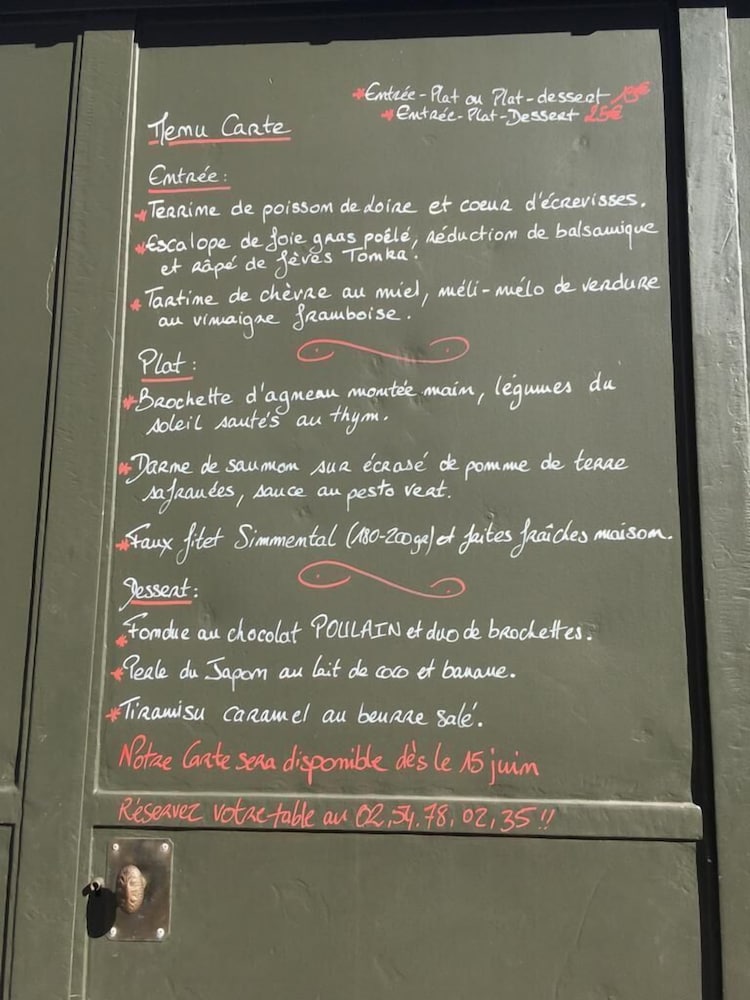 *Entrée-Plat ou Plat-dessert 19€
*Entrée-Plat-Dessert 25€
Menu Carte
Entrée:
*Terrine de poisson de Loire et coeur d'écrevisses.
*Escalope de foie gras poêlé, réduction de balsamique
et râpé de fèves Tonka.
*Tartine de chèvre au miel, méli-mélo de verdure
au vinaigre framboise.
Plat:
*Brochette d'agneau montée main, légumes du
soleil sautés au thym.
*Darne de saumon sur écrasé de pomme de terre
safranées, sauce au pesto vert.
*Faux filet Simmental (180-200gr) et frites fraîches maison.
Dessert:
*Fondue au chocolat POULAIN et duo de brochettes.
*Perle du Japon au lait de coco et banane.
*Tiramisu caramel au beurre salé.
Notre Carte sera disponible dès le 15 juin
Réservez votre table au 02.54.78.02.35!!